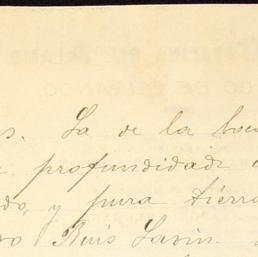 s. La de la boc
profundidad
do, y pura tierra
ro Ruis Lavin.